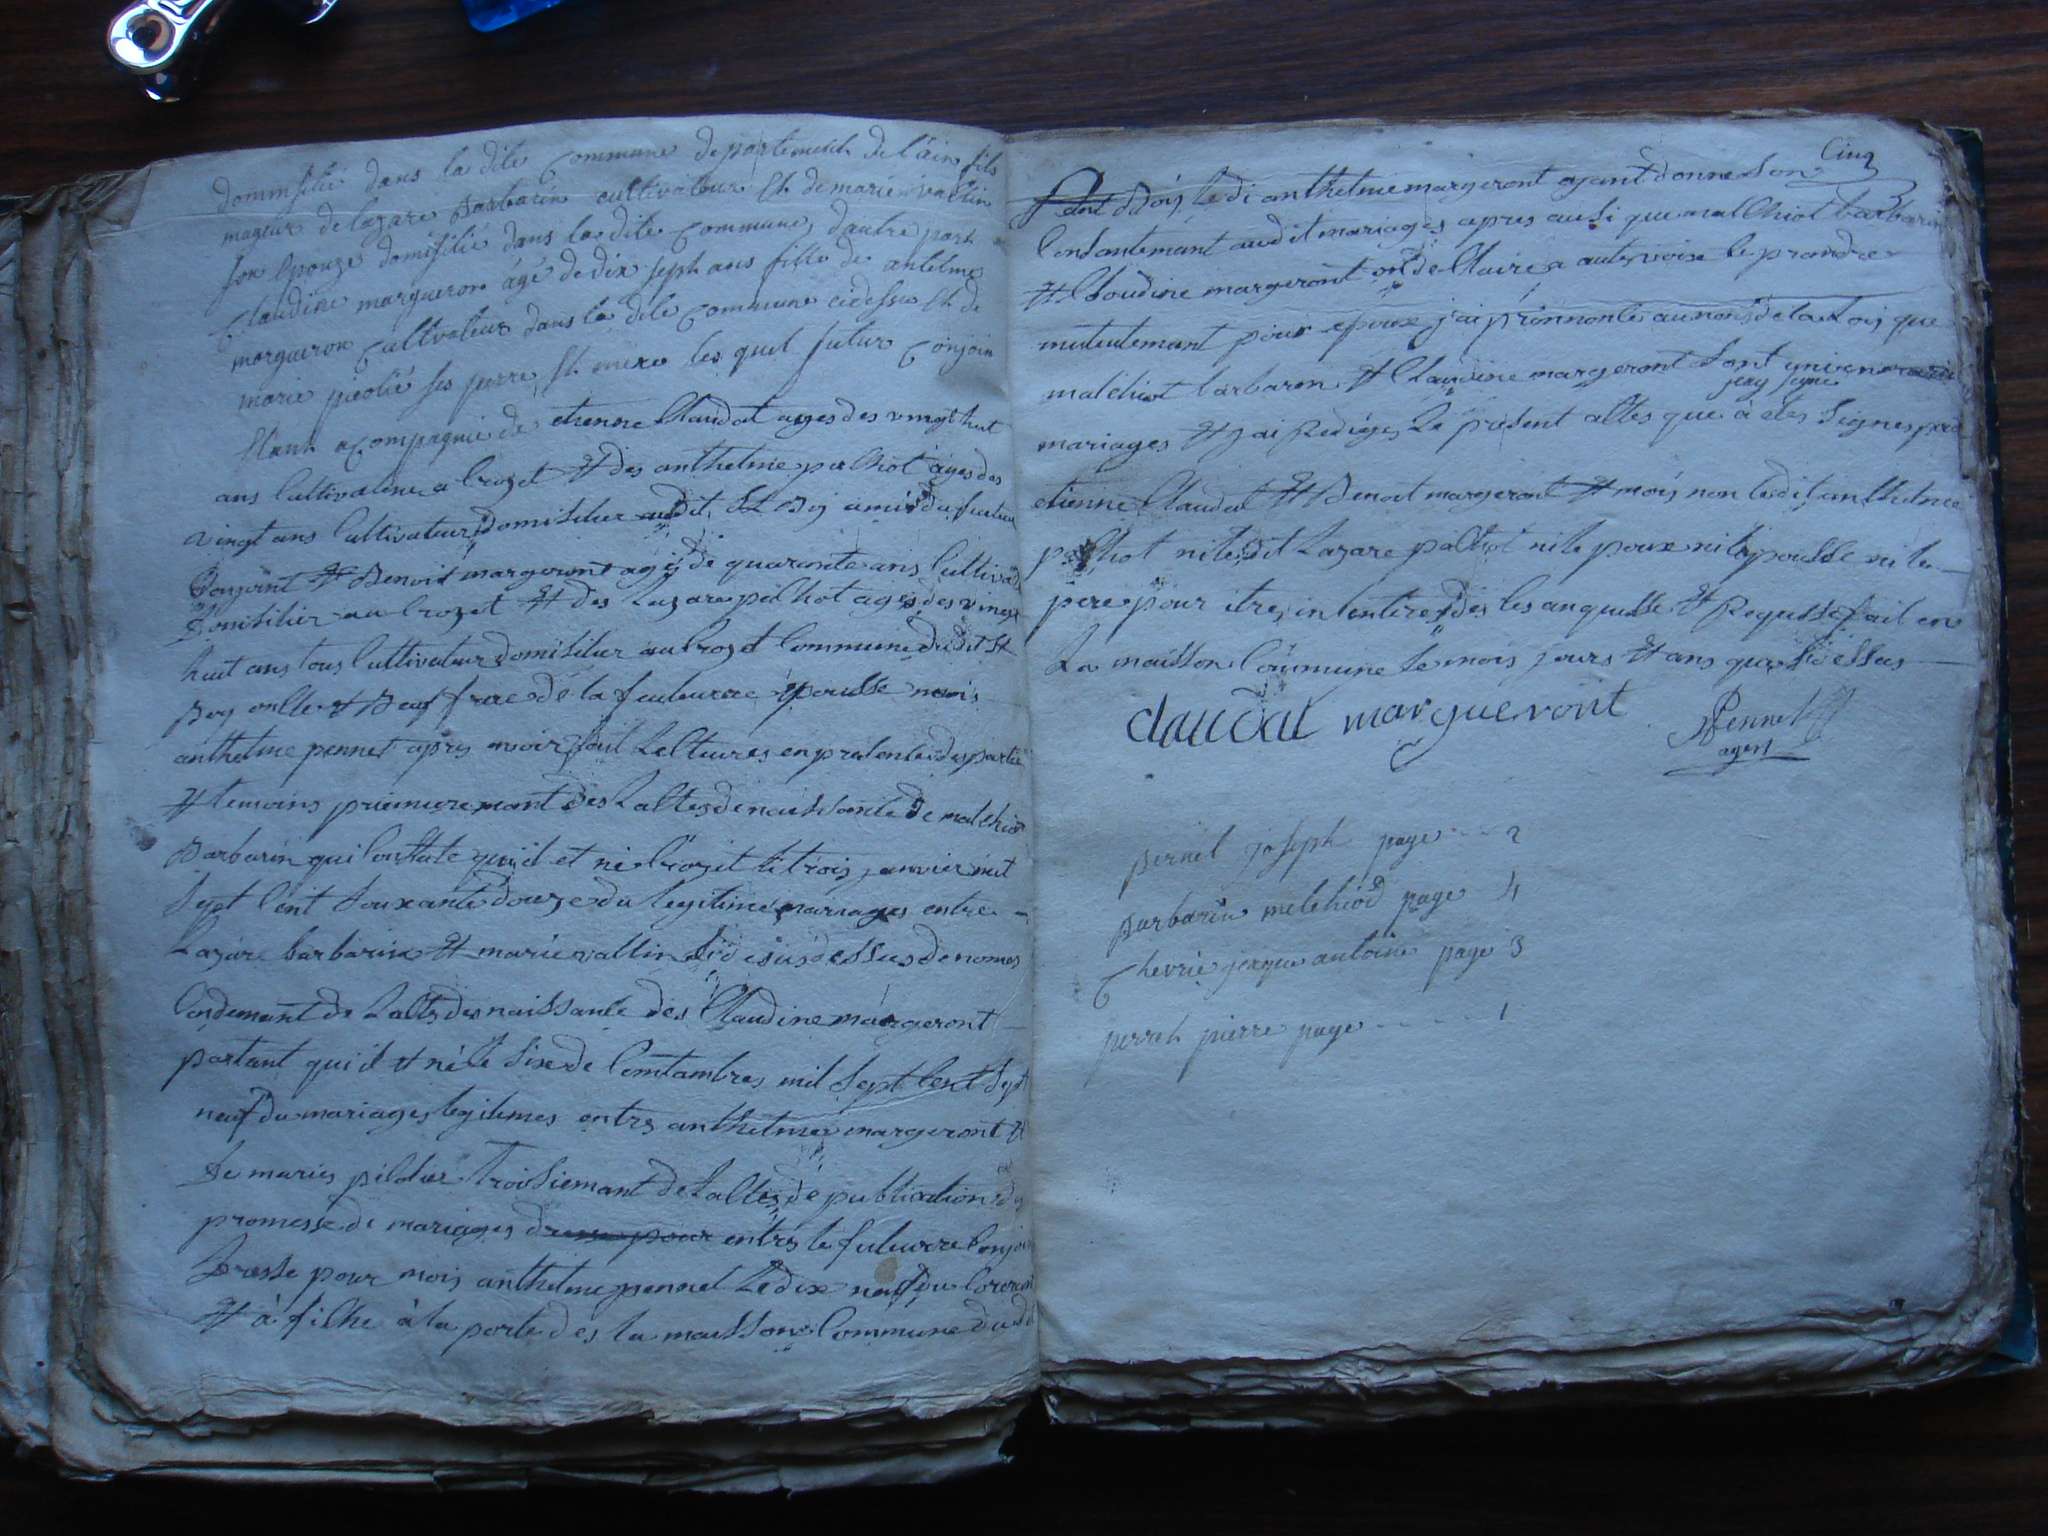 dommisilié dans la dite Commune departement de l'ain fils
mageur de lazare Barbarin cultivateur Et de marie vallin
son Epouze domisilié dans la dite Commune, d'autre part
Claudine margueron agé de dix sept ans fille de antelme
margueron Cultivateur dans la dite Commune cidessus Et de
marie picolié ses perre Et mere les quel futur Conjoin
Etant acompagnie de etienne Claudat ages des vingt huit
ans Cultivateur a Crozet Et des anthelme palhot ages des
vingt ans Cultivateur domisilier audit St Boy amis du futur
Conjoint Et Benoit margeront agé de quarante ans Cultiva
domisilier au Crozet Et des Lazare palhot ages des vingt
huit ans tous Cultivateur domisilier au Crozet Commune dudit St
Boy onlle Et Beuf frere de la futeure Epousse mois
anthelme pennet apres avoir fait Lecteures en presentes des partie
Et temoins primieremant des Lactes de naissance de malchior
Barbarin qui Constate quil et né Crozet le trois janvier mil
Sept Cent Souxante douze du legitime mariages entre
Lazare barbarin Et marie vallin dessus denomes
Condemant de Lactes des naissance des Claudine margeront
partant quil Et né le Sixe de mil Sept Cent Sept
neuf du mariages legitimes entre anthelme margeront Et
de maries pilolier Troisiemant de Lactes de publication des
promesse de mariages entres le futeurre Conjoin
dresse pour mois anthelme pennet Le dix neuf du
Et à fiche à la porte des la maisson Commune dudi
Cinq
St Bois Le di anthelme margeront ayant donne Son
Consantemant audit mariages apres ausi que malchiot barbarin
Et Claudine margeront ont de Claire a autevoix se prandre
mutuelemant pour epoux j'ai prononce au nom de la Loi que
malchiot barbaron Et Claudine margeront Sont uni en
mariages Et jai Rediges Le present actes que à etes Signes par
etienne Claudat Et Benoit margeront Et mois non ledit anthelme
palhot ni ledit Lazare palhot ni le poux ni lepousse ni le
pere pour itre de les anquisse Et Requisse fait en
La maisson Coumune Le mois jours Et ans que dessus
claudat margueront Pennet
agent
pernel joseph page 2
Barbarin melchiod page 4
Chevrie jaque antoine page 3
perret pierre page 1